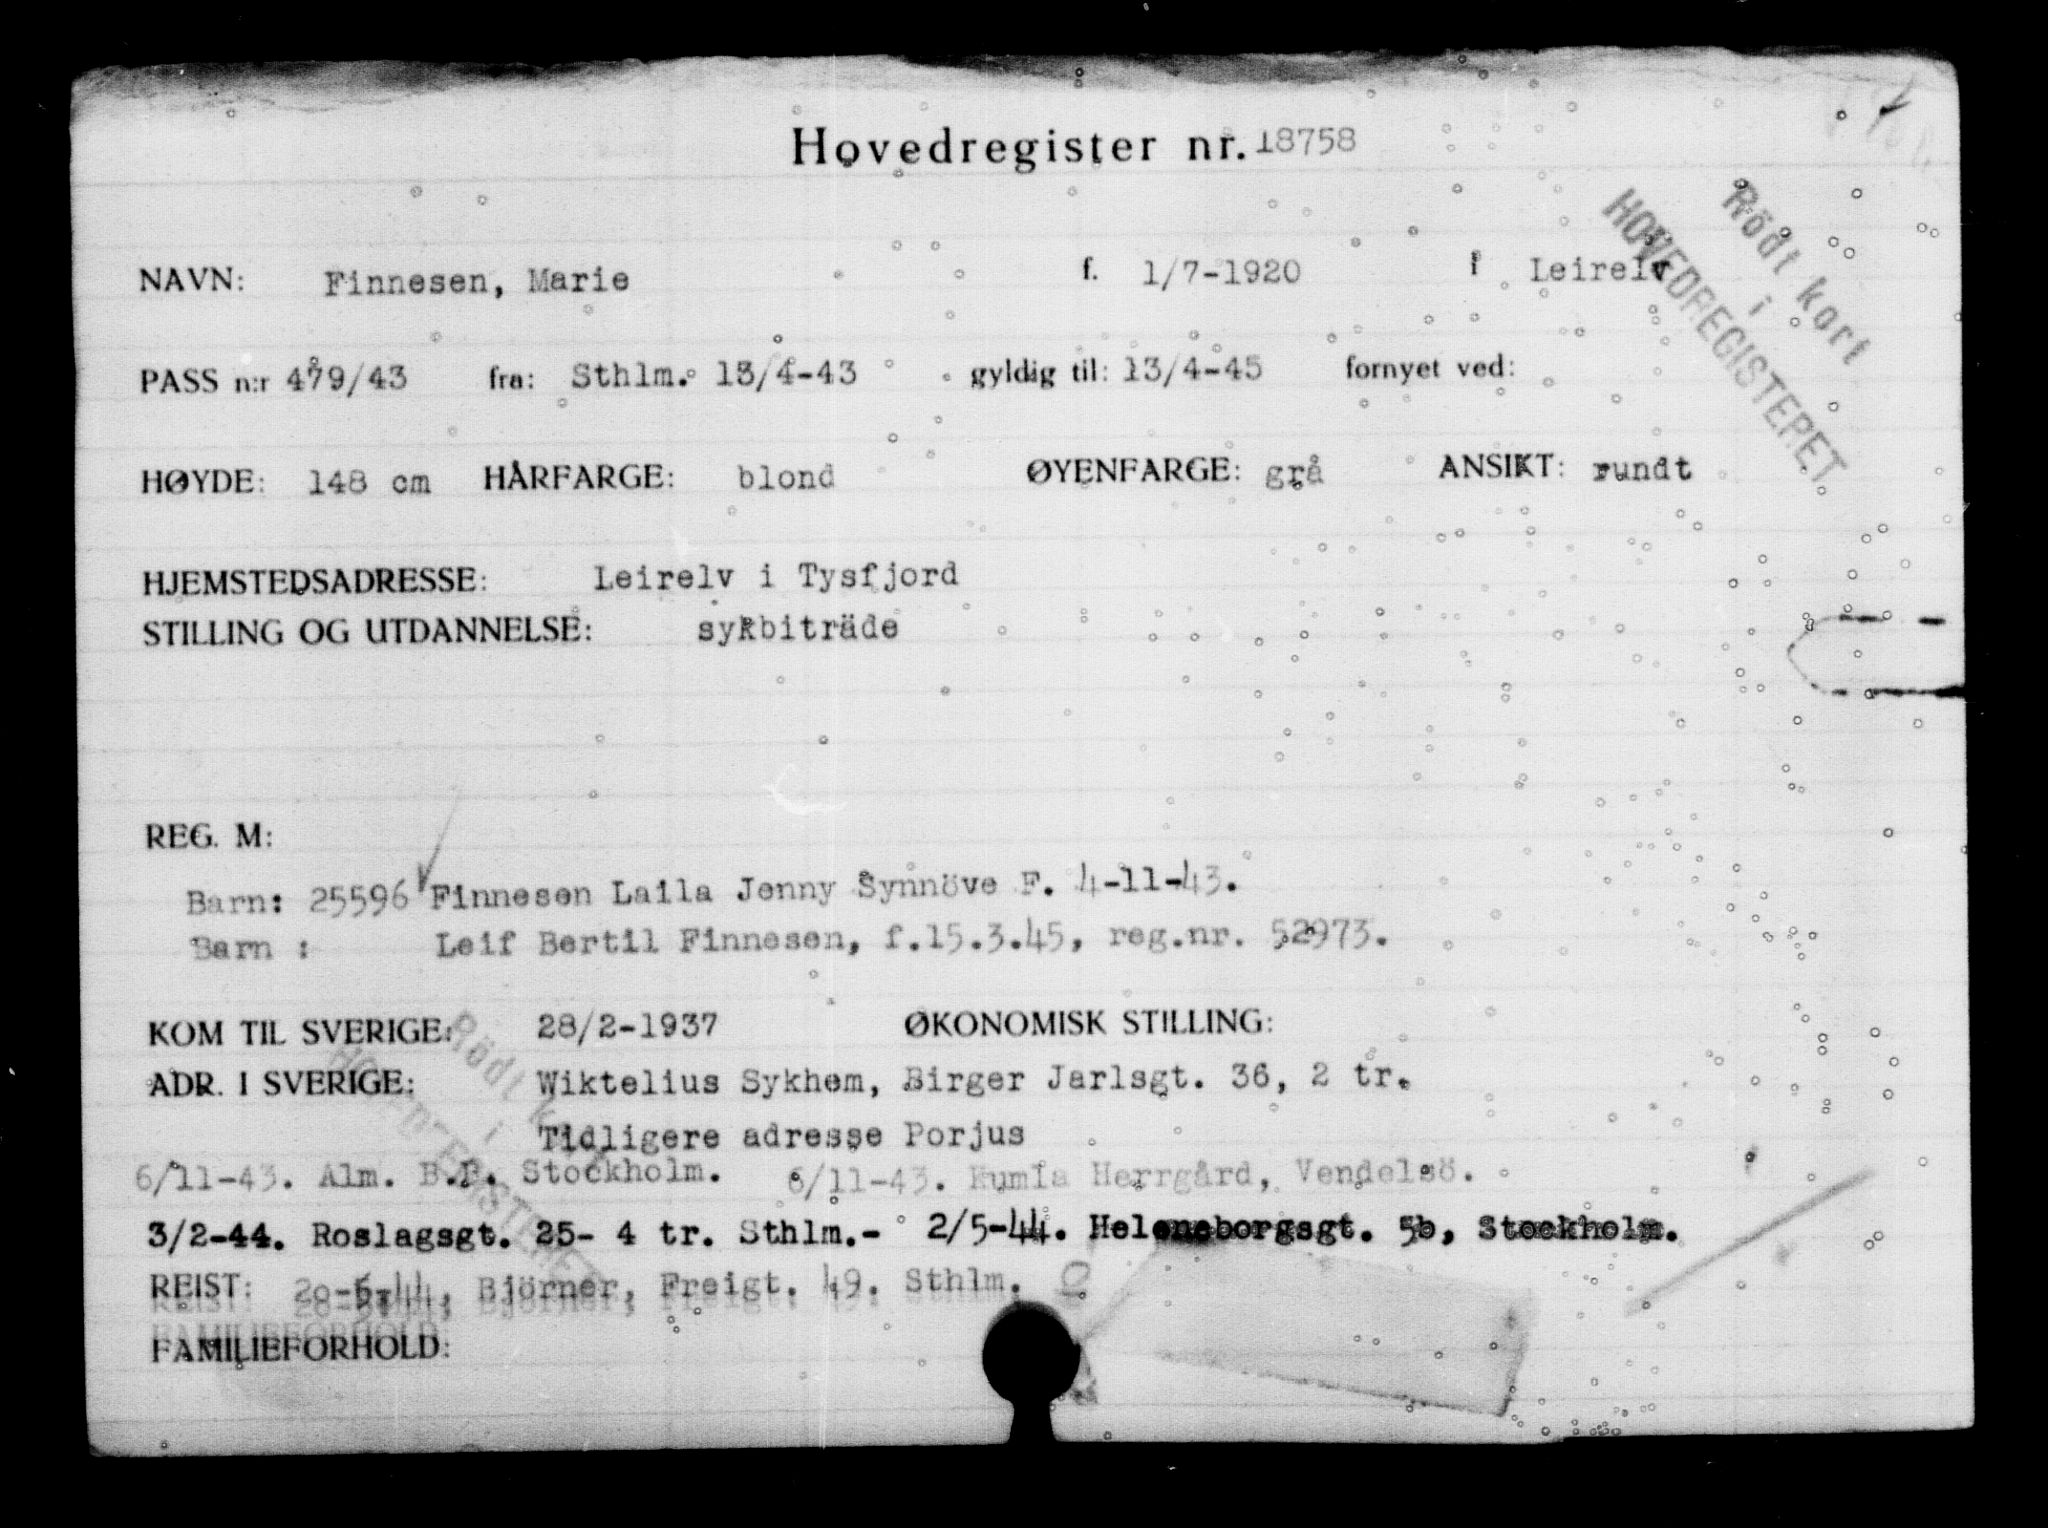 Hovedregister nr. 18758
Rödt kort
i
HOVEDREGISTERET
NAVN: Finnesen, Marie f. 1/7-1920 i Leirelv
PASS n:r 479/43 fra: Sthlm. 13/4-43 gyldig til: 13/4-45 fornyet ved:
HØYDE: 148 cm HÅRFARGE: blond ØYENFARGE: grå ANSIKT: rundt
HJEMSTEDSADRESSE: Leirelv i Tysfjord
STILLING OG UTDANNELSE: sykbiträde
REG. M:
Barn: 25596 Finnesen Laila Jenny Synnöve F. 4-11-43.
Barn : Leif Bertil Finnesen, f.15.3.45, reg.nr. 52973.
KOM TIL SVERIGE: 28/2-1937 ØKONOMISK STILLING:
ADR. I SVERIGE: Wiktelius Sykhem, Birger Jarlsgt. 36, 2 tr.
Tidligere adresse Porjus
6/11-43. Alm. B.B. Stockholm. 6/11-43. Kumla Herrgård, Vendelsö.
3/2-44. Roslagsgt. 25- 4 tr. Sthlm.- 2/5-44. Heleneborgsgt. 5b, Stockholm.
REIST: 20-5-44, Björner, Freigt. 49. Sthlm.
FAMILIEFORHOLD: